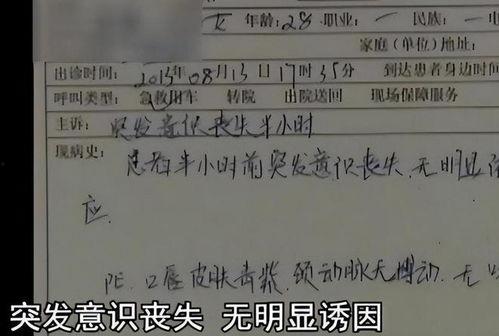 女 年龄:28 职业: 一 民族: 一
家庭(单位)地址:
出诊时间: 2013年08月13日17时35分 到达患者身边时间
呼叫类型: 急救用车 转院 出院送回 现场保障服务
主诉: 突发意识丧失半小时
现病史: 患者半小时前突发意识丧失,无明显
应.
PE: 口唇皮肤青紫, 颈动脉无搏动, 无
突发意识丧失 无明显诱因